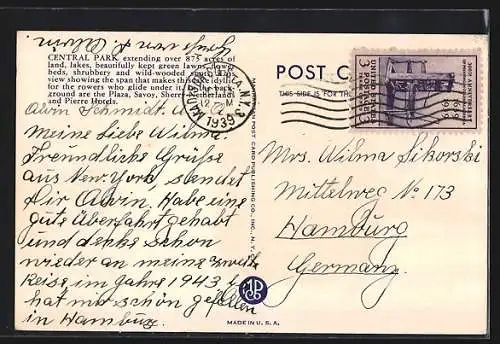 Gruss von F. Alwin.
CENTRAL PARK extending over 875 acres of
land, lakes, beautifully kept green lawns, flower
beds, shrubbery and wild-wooded spots. This
view showing the span that makes this lake idyllic
for the rowers who glide under it. In the back-
ground are the Plaza, Savoy, Sherry Netherland
and Pierre Hotels.
Alwin Schmidt.
Meine liebe Wilma
Freundliche Grüsse
aus New-York, sendet
Dir Alwin. Habe eine
gute Überfahrt gehabt
und denke schon
wieder an meine zweite
Reise im Jahre 1943. Es
hat mir schön gefallen
in Hamburg.
N.Y. 3
12 M
1939
MANHATTAN POST CARD PUBLISHING CO., INC., N. Y.
MADE IN U. S. A.
POST C
THIS SIDE IS FOR THE
UNITED STATES POSTAGE
3
1639 1939
Mrs. Wilma Sikorski
Mittelweg No 173
Hamburg
Germany.